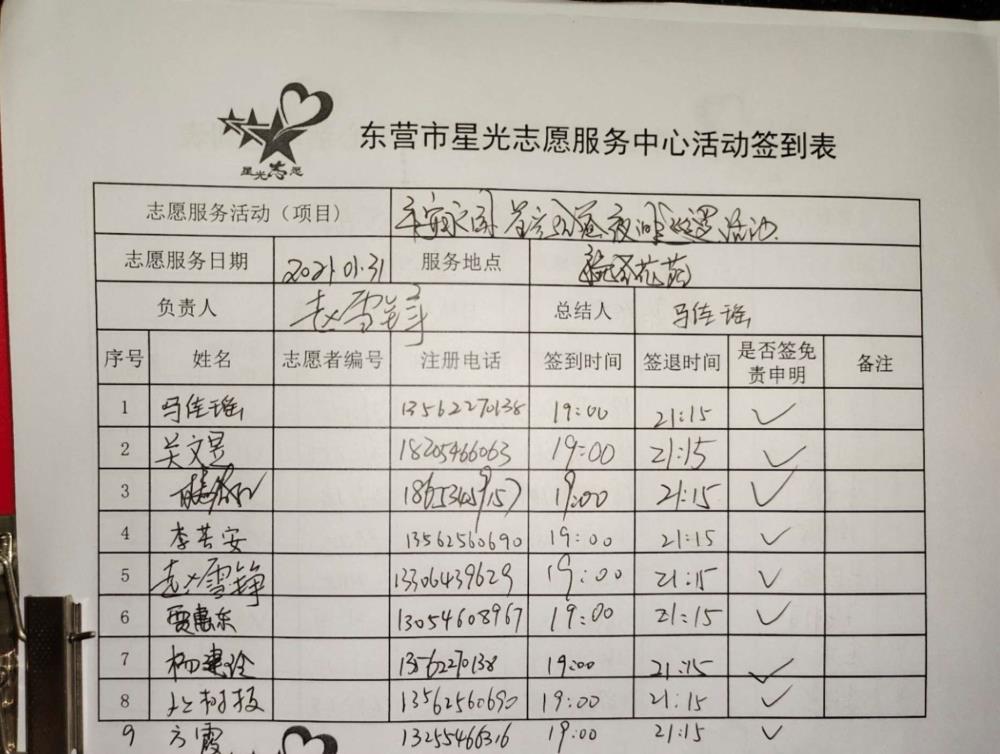 星光志愿
东营市星光志愿服务中心活动签到表
志愿服务活动（项目） 平安家园 夜间巡逻活动
志愿服务日期 2021.01.31 服务地点 花苑
负责人 赵雪铮 总结人 马佳瑶
序号 姓名 志愿者编号 注册电话 签到时间 签退时间 是否签免责申明 备注
1 马佳瑶 13562270138 19:00 21:15 ✓
2 关文昱 18205466063 19:00 21:15 ✓
3 19:00 21:15 ✓
4 李若安 13562560690 19:00 21:15 ✓
5 赵雪铮 13306439629 19:00 21:15 ✓
6 贾惠东 13054608967 19:00 21:15 ✓
7 13562270138 19:00 21:15 ✓
8 13562560690 19:00 21:15 ✓
9 方霞 13255466316 19:00 21:15 ✓